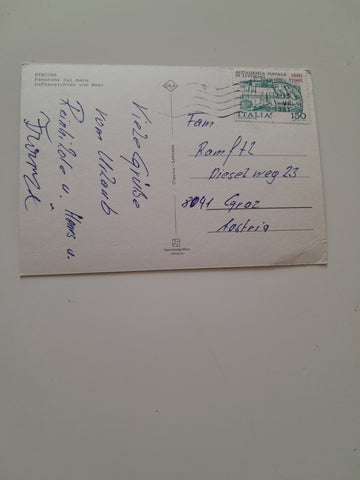 Panorami dal mare
Luftansichten vom Meer
Viele Grüße
vom Urlaub
Reinhilde u. Hans u.
ACCADEMIA NAVALE
DI LIVORNO
1881
1981
ITALIA
150
Fam
Rampftl
Dieselweg 23
8041 Graz
Austria